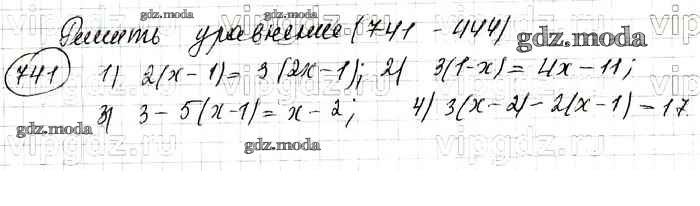 Решить уравнение (741 - 444)
741 1) 2(x-1)=3(2x-1); 2) 3(1-x)=4x-11;
3) 3-5(x-1)=x-2; 4) 3(x-2)-2(x-1)=17.
gdz.moda
gdz.moda
gdz.moda
gdz.moda
gdz.moda
gdz.moda
vipgdz.ru
vipgdz.ru
vipgdz.ru